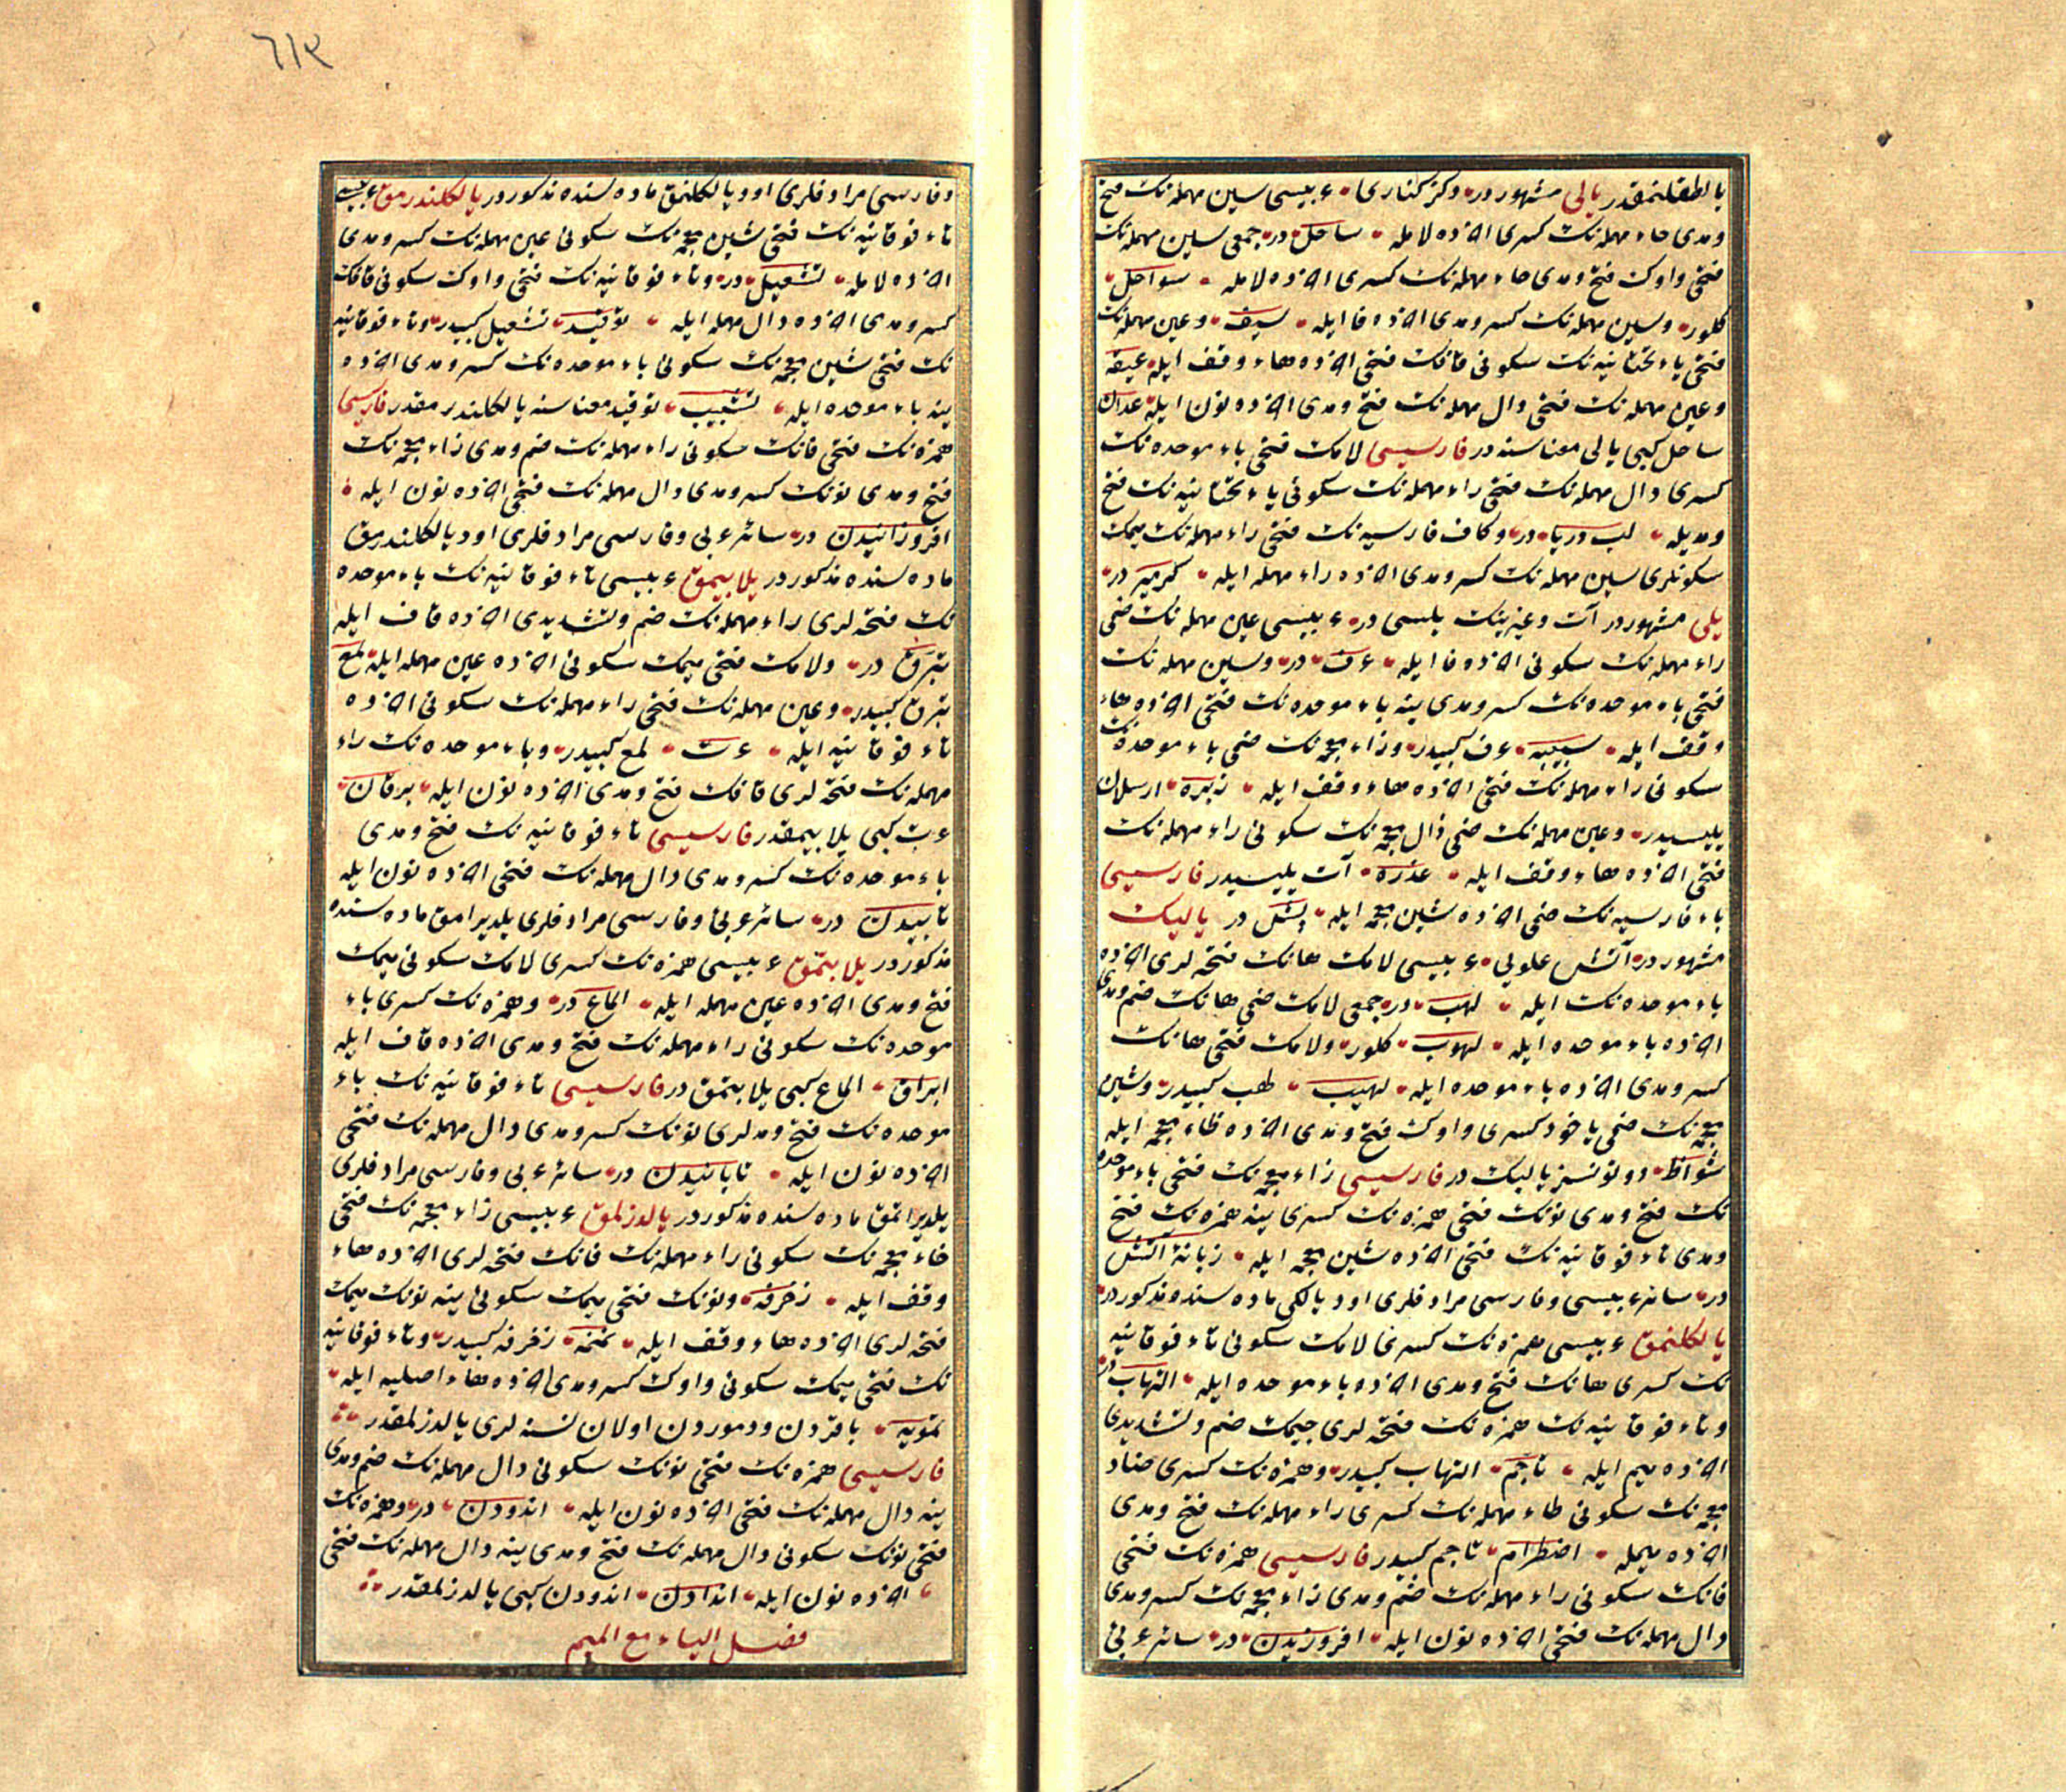 یالطقلنمقدر یالی مشهوردر و کز کناری عربیسی سین مهمله نک فتح
ومدی حاء مهمله نک کسری اخرده لامله ساحل در جمعی سین مهمله نک
فتحی واوک فتح ومدی حاء مهمله نک کسری اخرده لامله سواحل
کلور وسین مهمله نک کسر ومدی اخرده فا ایله سیف وعین مهمله نک
فتحی یاء تحتانیه نک سکونی قافک فتحی اخرده هاء وقف ایله عیقه
وعین مهمله نک فتحی دال مهمله نک فتح ومدی اخرده نون ایله عدان
ساحل کبی یالی معناسنه در فارسیسی لامک فتحی باء موحده نک
کسری دال مهمله نک فتحی راء مهمله نک سکونی یاء تحتانیه نک فتح
ومدیله لب دریا در وکاف فارسیه نک فتحی راء مهمله نک میمک
سکونلری سین مهمله نک کسر ومدی اخرده راء مهمله ایله کرمسیر در
یلی مشهوردر آت وغیرینک یلیسی در عربیسی عین مهمله نک ضمی
راء مهمله نک سکونی اخرده فا ایله عرف در وسین مهمله نک
فتحی باء موحده نک کسر ومدی ینه باء موحده نک فتحی اخرده هاء
وقف ایله سبیبه عرف کبیدر وزاء معجمه نک ضمی باء موحده نک
سکونی راء مهمله نک فتحی اخرده هاء وقف ایله زبره ارسلان
یلیسیدر وعین مهمله نک ضمی ذال معجمه نک سکونی راء مهمله نک
فتحی اخرده هاء وقف ایله عذره آت یلیسیدر فارسیسی
باء فارسیه نک ضمی اخرده شین معجمه ایله پش در یالیک
مشهوردر آتش علوی عربیسی لامک هانک فتحه لری اخرده
باء موحده نک ایله لهب در جمعی لامک ضمی هانک ضم ومدی
اخرده باء موحده ایله لهوب کلور ولامک فتحی هانک
کسر ومدی اخرده باء موحده ایله لهیب لهب کبیدر وشین
معجمه نک ضمی یاخود کسری واوک فتح ومدی اخرده ظاء معجمه ایله
شواظ دوتونسز یالیک در فارسیسی زاء معجمه نک فتحی باء موحده
نک فتح ومدی نونک فتحی همزه نک کسری ینه همزه نک فتح
ومدی تاء فوقانیه نک فتحی اخرده شین معجمه ایله زبانۀ آتش
در سائر عربیسی وفارسی مرادفلری اود یالکی ماده سنده مذکوردر
یالکلنمق عربیسی همزه نک کسری لامک سکونی تاء فوقانیه
نک کسری هانک فتح ومدی اخرده باء موحده ایله التهاب در
وتاء فوقانیه نک همزه نک فتحه لری جیمک ضم وتشدیدی
اخرده میم ایله تاجم التهاب کبیدر وهمزه نک کسری ضاد
معجمه نک سکونی طاء مهمله نک کسری راء مهمله نک فتح ومدی
اخرده میمله اضطرام تاجم کبیدر فارسیسی همزه نک فتحی
فانک سکونی راء مهمله نک ضم ومدی زاء معجمه نک کسر ومدی
دال مهمله نک فتحی اخرده نون ایله افروزیدن در سائر عربی
٦١٣
وفارسی مرادفلری اود یالکلنمق ماده سنده مذکوردر یالکلندرمق عربیسی
تاء فوقانیه نک فتحی شین معجمه نک سکونی عین مهمله نک کسر ومدی
اخرده لامله تشعیل در وتاء فوقانیه نک فتحی واوک سکونی قافک
کسر ومدی اخرده دال مهمله ایله توقید تشعیل کبیدر وتاء فوقانیه
نک فتحی شین معجمه نک سکونی باء موحده نک کسر ومدی اخرده
ینه باء موحده ایله تشبیب توقید معناسنه یالکلندرمقدر فارسیسی
همزه نک فتحی فانک سکونی راء مهمله نک ضم ومدی زاء معجمه نک
فتح ومدی نونک کسر ومدی دال مهمله نک فتحی اخرده نون ایله
افروزانیدن در سائر عربی وفارسی مرادفلری اود یالکلندرمق
ماده سنده مذکوردر یلابیمق عربیسی تاء فوقانیه نک باء موحده
نک فتحه لری راء مهمله نک ضم وتشدیدی اخرده قاف ایله
تبرق در ولامک فتحی میمک سکونی اخرده عین مهمله ایله لمع
تبرق کبیدر وعین مهمله نک فتحی راء مهمله نک سکونی اخرده
تاء فوقانیه ایله عرت لمع کبیدر وباء موحده نک راء
مهمله نک فتحه لری قافک فتح ومدی اخرده نون ایله برقان
عرت کبی یلابیمقدر فارسیسی تاء فوقانیه نک فتح ومدی
باء موحده نک کسر ومدی دال مهمله نک فتحی اخرده نون ایله
تابیدن در سائر عربی وفارسی مرادفلری یلدیرامق ماده سنده
مذکوردر یلابتمق عربیسی همزه نک کسری لامک سکونی میمک
فتح ومدی اخرده عین مهمله ایله الماع در وهمزه نک کسری باء
موحده نک سکونی راء مهمله نک فتح ومدی اخرده قاف ایله
ابراق الماع کبی یلابتمق در فارسیسی تاء فوقانیه نک باء
موحده نک فتح ومدلری نونک کسر ومدی دال مهمله نک فتحی
اخرده نون ایله تابانیدن در سائر عربی وفارسی مرادفلری
یلدیراتمق ماده سنده مذکوردر یالدزلمق عربیسی زاء معجمه نک فتحی
خاء معجمه نک سکونی راء مهمله نک فانک فتحه لری اخرده هاء
وقف ایله زخرفه ونونک فتحی میمک سکونی ینه نونک میمک
فتحه لری اخرده هاء وقف ایله نمنمه زخرفه کبیدر وتاء فوقانیه
نک فتحی میمک سکونی واوک کسر ومدی اخرده هاء اصلیه ایله
تمویه باقردن ودموردن اولان نسنه لری یالدزلمقدر
فارسیسی همزه نک فتحی نونک سکونی دال مهمله نک ضم ومدی
ینه دال مهمله نک فتحی اخرده نون ایله اندودن در وهمزه نک
فتحی نونک سکونی دال مهمله نک فتح ومدی ینه دال مهمله نک فتحی
اخرده نون ایله اندادن اندودن کبی یالدزلمقدر
فصل الیاء مع المیم